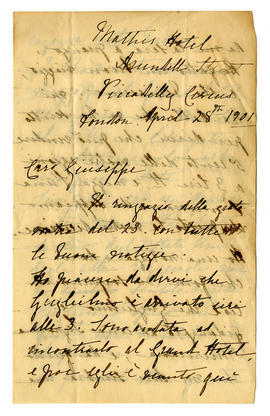 Mathis Hotel
Arundell St
Piccadilly Circus
London April 28th 1901
Caro Giuseppe
Vi ringrazio della grta
vostra del 23. con tutte
le buone notizie.
Ho piacere da dirvi che
Guglielmo è arrivato ieri
alle 3. Sono andata ad
incontrarlo al Grand Hotel,
e poi egli è venuto quì